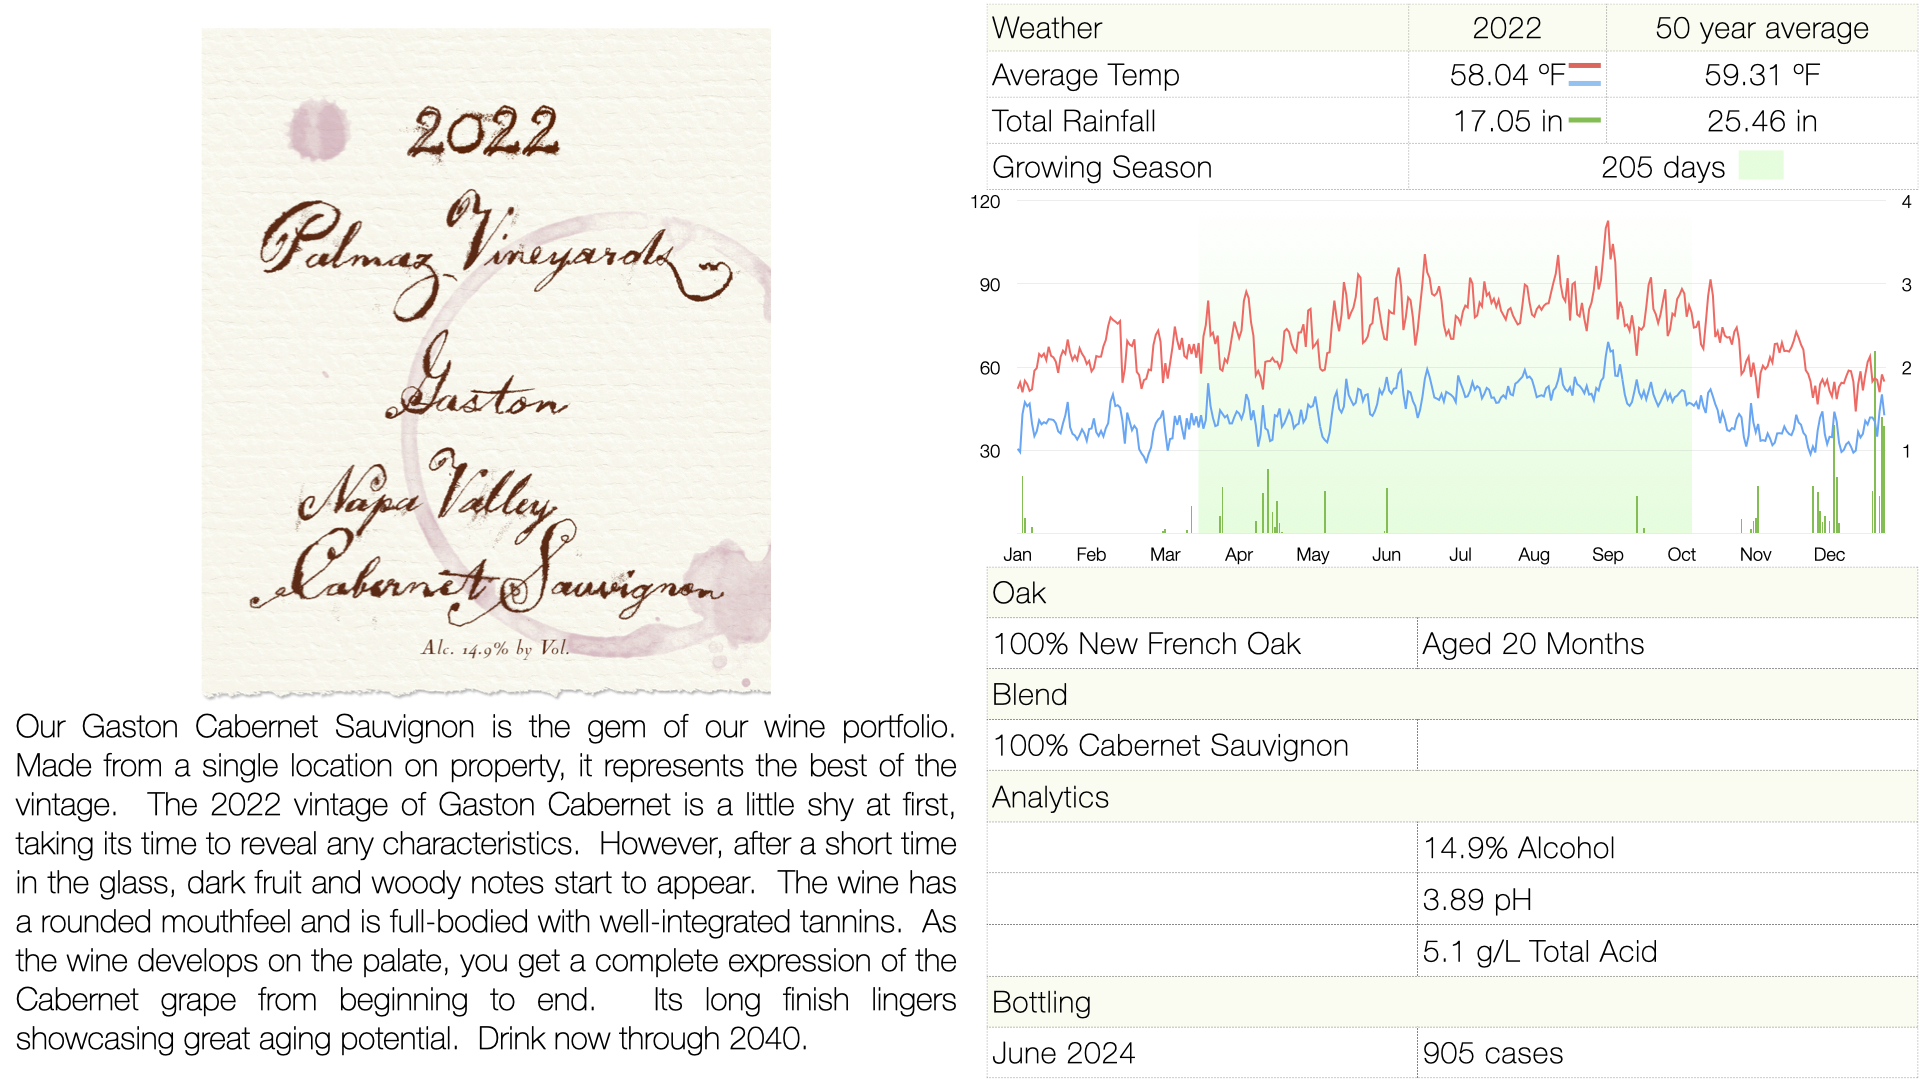 2022
Palmaz Vineyards
Gaston
Napa Valley
Cabernet Sauvignon
Alc. 14.9% by Vol.
Our Gaston Cabernet Sauvignon is the gem of our wine portfolio.
Made from a single location on property, it represents the best of the
vintage. The 2022 vintage of Gaston Cabernet is a little shy at first,
taking its time to reveal any characteristics. However, after a short time
in the glass, dark fruit and woody notes start to appear. The wine has
a rounded mouthfeel and is full-bodied with well-integrated tannins. As
the wine develops on the palate, you get a complete expression of the
Cabernet grape from beginning to end. Its long finish lingers
showcasing great aging potential. Drink now through 2040.
Weather 2022 50 year average
Average Temp 58.04 ºF 59.31 ºF
Total Rainfall 17.05 in 25.46 in
Growing Season 205 days
120 4
90 3
60 2
30 1
Jan Feb Mar Apr May Jun Jul Aug Sep Oct Nov Dec
Oak
100% New French Oak Aged 20 Months
Blend
100% Cabernet Sauvignon
Analytics
14.9% Alcohol
3.89 pH
5.1 g/L Total Acid
Bottling
June 2024 905 cases